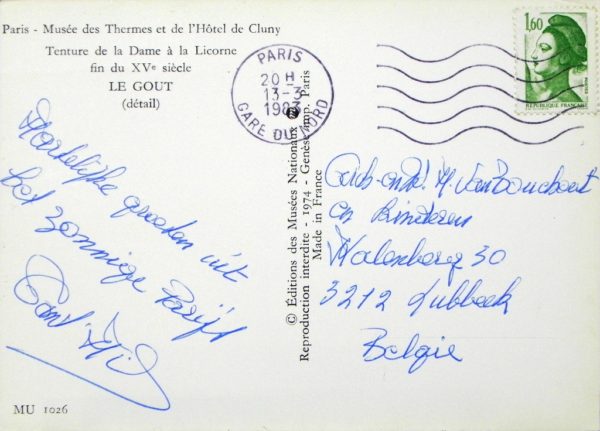 Paris - Musée des Thermes et de l'Hôtel de Cluny
Tenture de la Dame à la Licorne
fin du XVe siècle
LE GOUT
(détail)
Hartelijke groeten uit
het zonnige Parijs
MU 1026
© Éditions des Musées Nationaux Paris
Reproduction interdite - 1974 - Genèse imp.
Made in France
PARIS
20 H
13-3
GARE DU NORD
1,60
REPUBLIQUE FRANÇAISE
M. Van Bouchout
en kinderen
30
3212 Lubbeek
Belgie